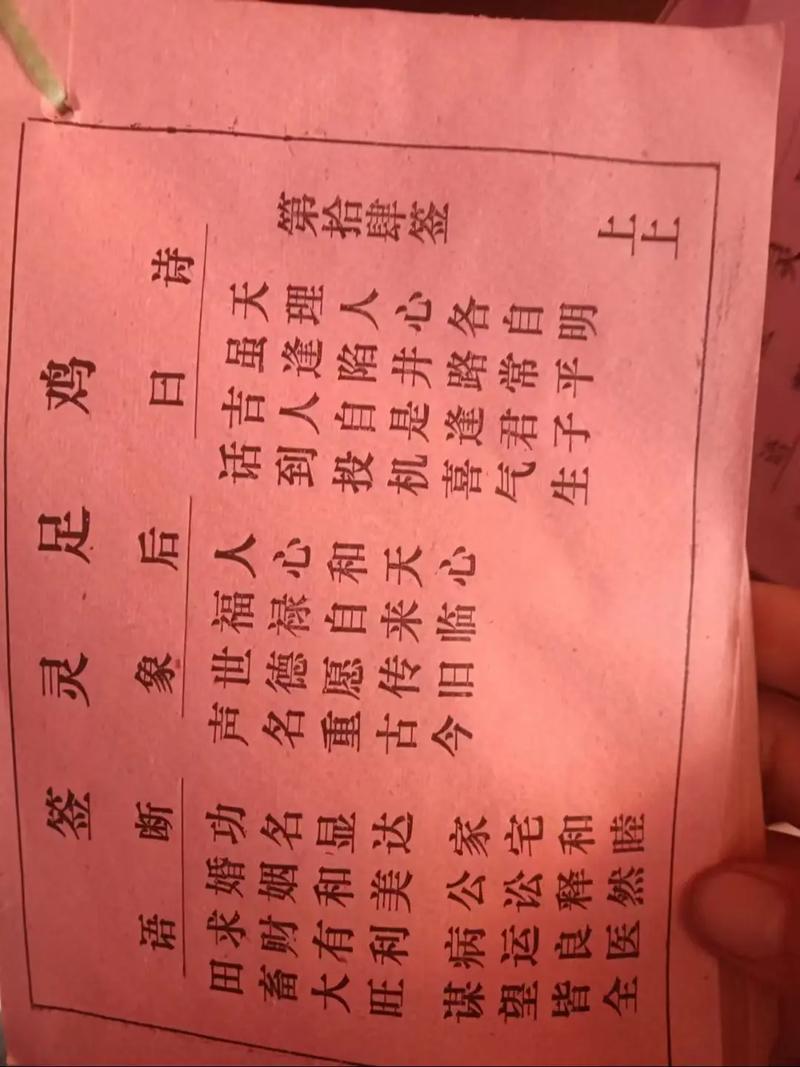 鸡足灵签
诗曰
第拾肆签 上上
天理人心各自明
虽逢陷井路常平
吉人自是逢君子
话到投机喜气生
后象
人心和天心
福禄自来临
世德愿传旧
声名重古今
断语
功名显达 家宅和睦
婚姻和美 公讼释然
求财有利 病运良医
田畜大旺 谋望皆全